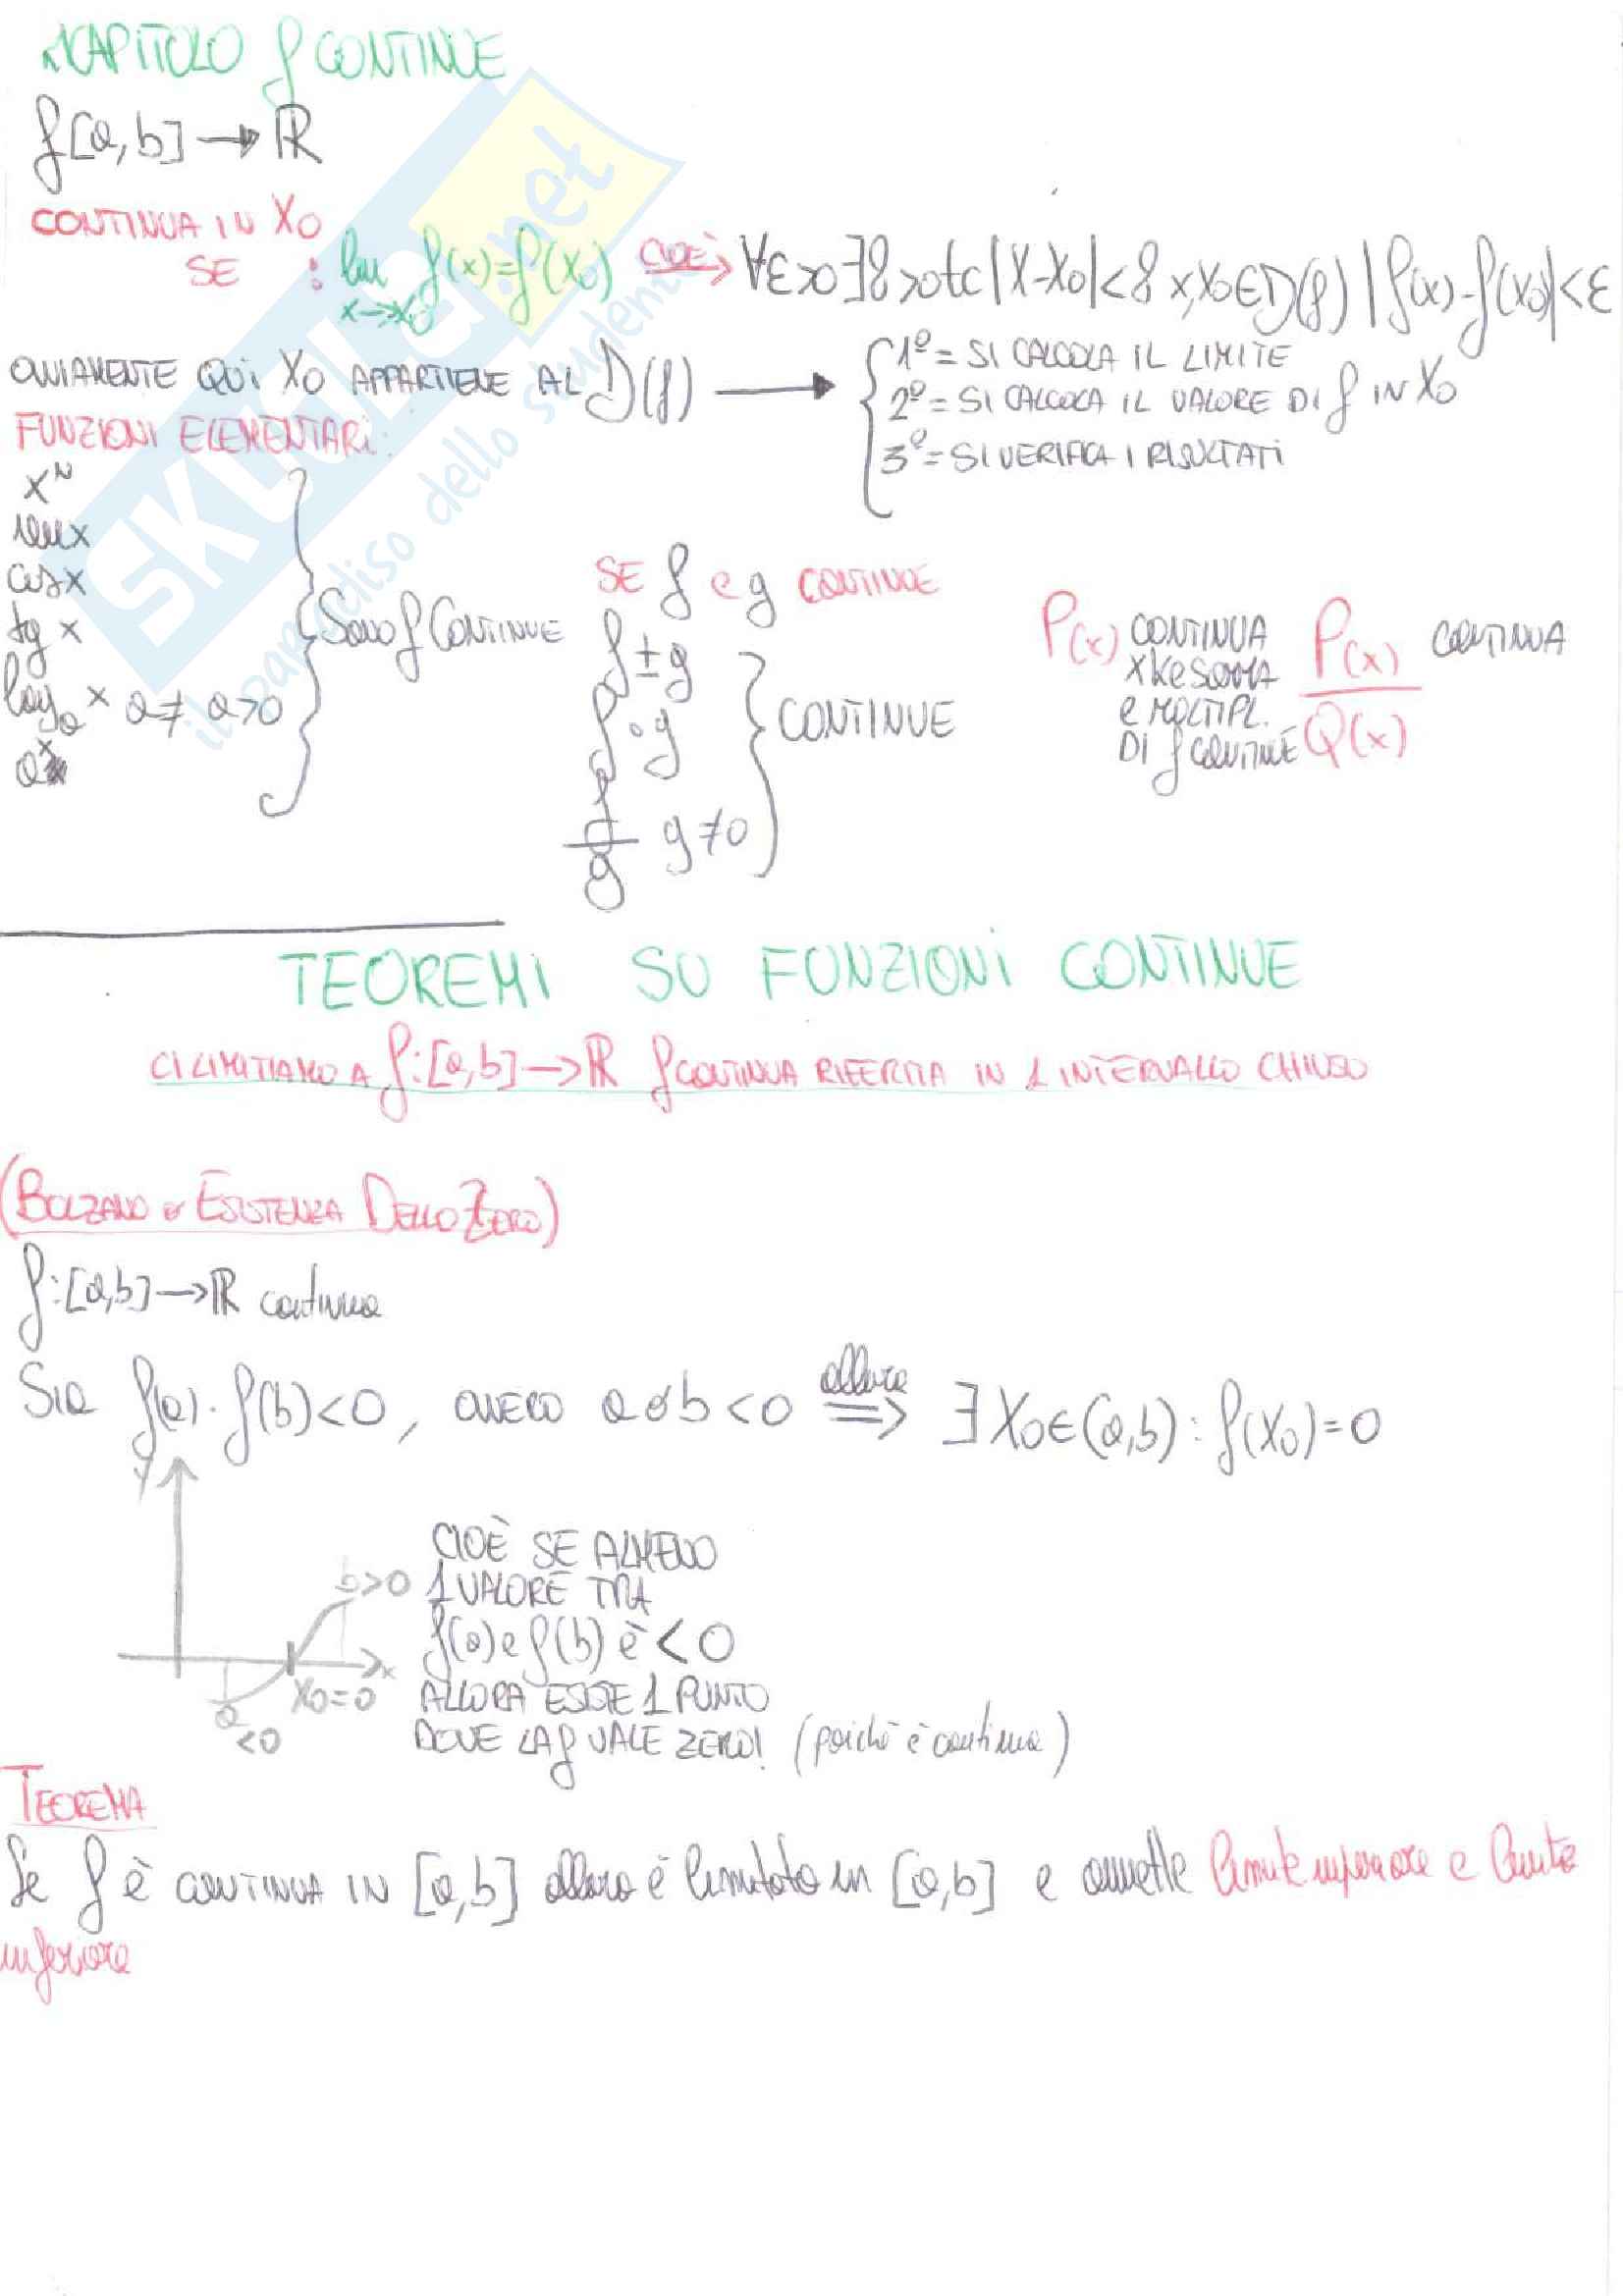 1 CAPITOLO f CONTINUE
f[a,b] → ℝ
CONTINUA IN X0
SE : lim x→x0 f(x)=f(x0) CIOÈ → ∀ε>0 ∃δ>0 tc |x-x0|<δ x,x0∈D(f) |f(x)-f(x0)|<ε
OVVIAMENTE QUI X0 APPARTIENE AL D(f) →
1º = SI CALCOLA IL LIMITE
2º = SI CALCOLA IL VALORE DI f IN X0
3º = SI VERIFICA I RISULTATI
FUNZIONI ELEMENTARI:
x^N
sen x
cos x
tg x
log_a x a≠ a>0
a^x
SONO f CONTINUE
SE f e g CONTINUE
f±g
f∘g
f/g g≠0
CONTINUE
P(x) CONTINUA
xke SOMMA
e MOLTIPL.
DI f CONTINUE
P(x)/Q(x) CONTINUA
TEOREMI SU FUNZIONI CONTINUE
CI LIMITIAMO A f:[a,b]→ℝ f CONTINUA RIFERITA IN 1 INTERVALLO CHIUSO
(BOLZANO o ESISTENZA DELLO ZERO)
f:[a,b]→ℝ continua
Sia f(a)·f(b)<0, OVVERO a o b <0 allora ⟹ ∃ X0∈(a,b): f(X0)=0
y
b>0
x
X0=0
a
<0
CIOÈ SE ALMENO
1 VALORE TRA
f(a) e f(b) è <0
ALLORA ESISTE 1 PUNTO
DOVE LA f VALE ZERO! (poichè è continua)
TEOREMA
Se f è CONTINUA IN [a,b] allora è limitata in [a,b] e ammette limite superiore e limite
inferiore
SKUOLA.net
il paradiso dello studente